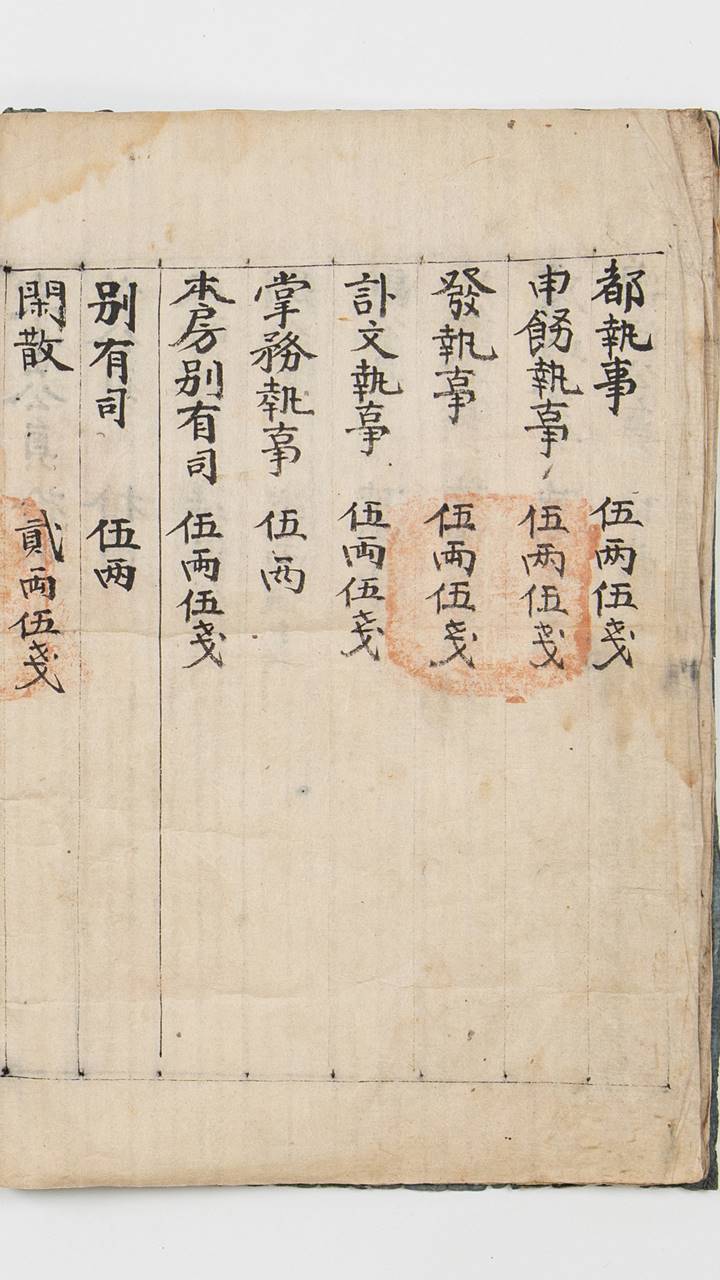 都執事 伍两伍戔
申飭執事 伍两伍戔
發執事 伍両伍戔
訃文執事 伍両伍戔
掌務執事 伍両
本房別有司 伍両伍戔
別有司 伍两
閑散 貳両伍戔